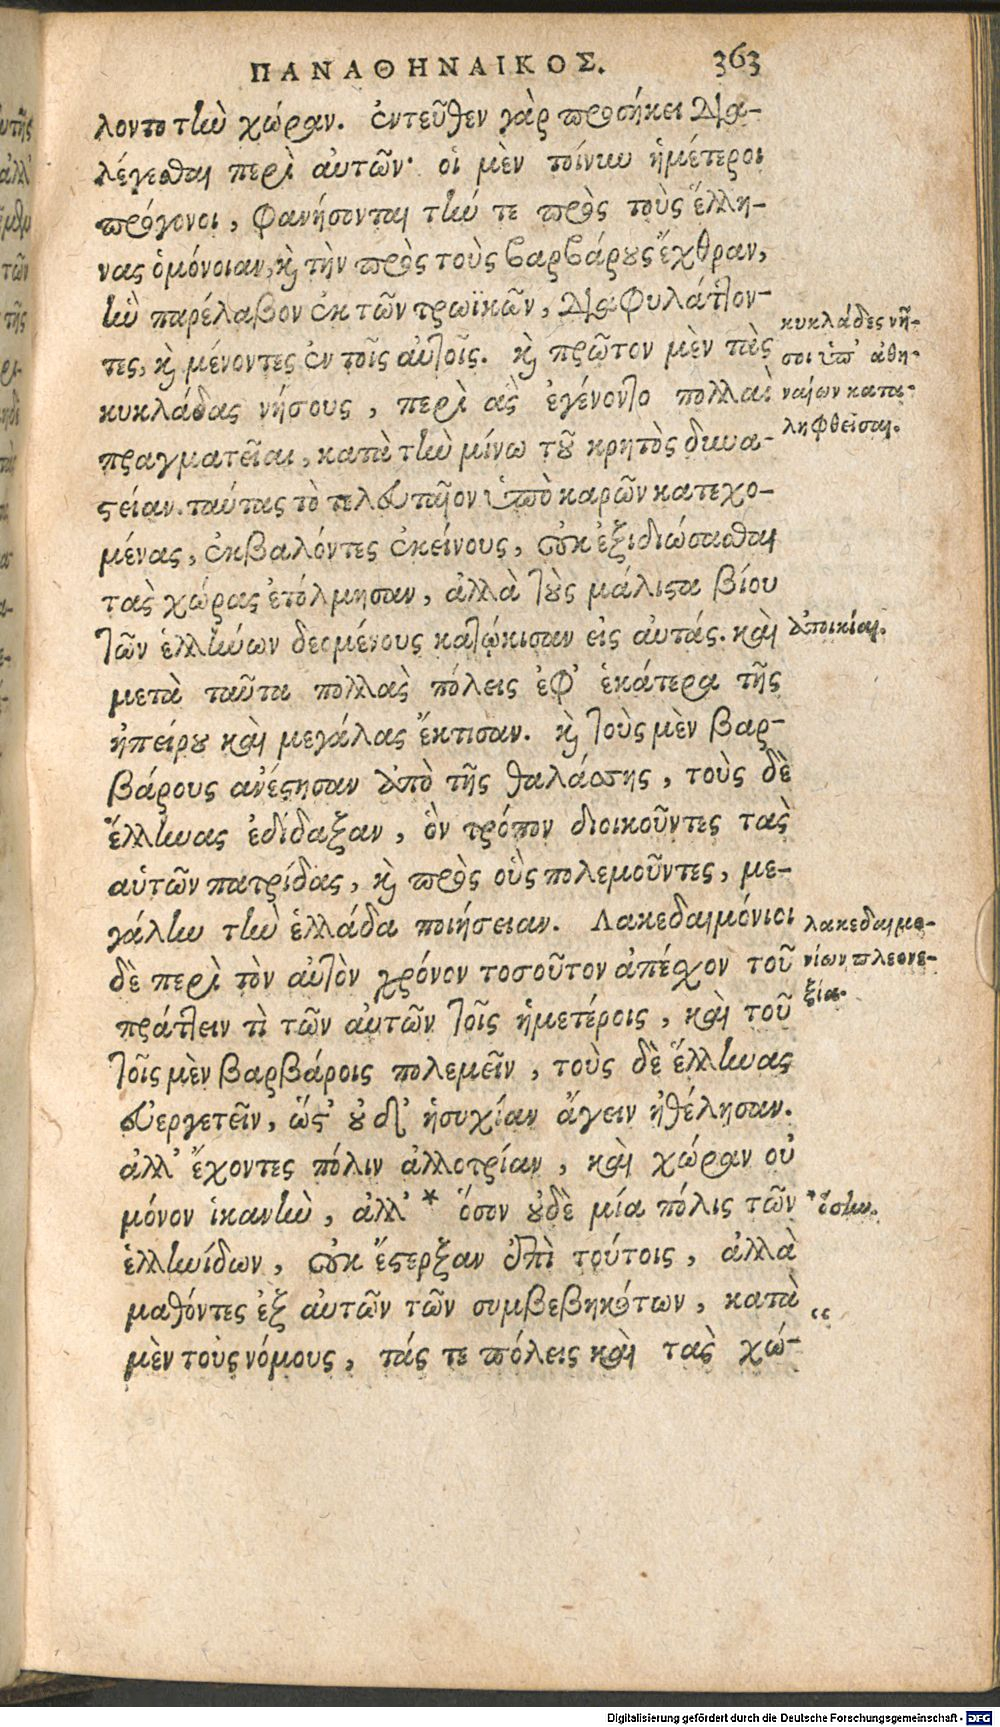 ΠΑΝΑΘΗΝΑΙΚΟΣ. 363
λοντο τὴν χώραν. ἐντεῦθεν γὰρ προσήκει δια-
λέγεσθαι περὶ αὐτῶν· οἱ μὲν τοίνυν ἡμέτεροι
πρόγονοι, φανήσονται τήν τε πρὸς τοὺς ἕλλη-
νας ὁμόνοιαν, καὶ τὴν πρὸς τοὺς βαρβάρους ἔχθραν,
ἣν παρέλαβον ἐκ τῶν τρωϊκῶν, διαφυλάττον-
τες, καὶ μένοντες ἐν τοῖς αὐτοῖς. καὶ πρῶτον μὲν τὰς
κυκλάδας νήσους, περὶ ἃς ἐγένοντο πολλαὶ
πραγματεῖαι, κατὰ τὴν μίνω τοῦ κρητὸς δυνα-
στείαν. ταύτας τὸ τελευταῖον ὑπὸ καρῶν κατεχο-
μένας, ἐκβαλόντες ἐκείνους, οὐκ ἐξιδιώσασθαι
τὰς χώρας ἐτόλμησαν, ἀλλὰ τοὺς μάλιστα βίου
τῶν ἑλλήνων δεομένους κατῴκισαν εἰς αὐτάς. καὶ
μετὰ ταῦτα πολλὰς πόλεις ἐφ᾽ ἑκάτερα τῆς
ἠπείρου καὶ μεγάλας ἔκτισαν. καὶ τοὺς μὲν βαρ-
βάρους ἀνέστησαν ἀπὸ τῆς θαλάσσης, τοὺς δὲ
ἕλληνας ἐδίδαξαν, ὃν τρόπον διοικοῦντες τὰς
αὑτῶν πατρίδας, καὶ πρὸς οὓς πολεμοῦντες, με-
γάλην τὴν ἑλλάδα ποιήσειαν. Λακεδαιμόνιοι
δὲ περὶ τὸν αὐτὸν χρόνον τοσοῦτον ἀπέσχον τοῦ
πράττειν τὶ τῶν αὐτῶν τοῖς ἡμετέροις, καὶ τοῦ
τοῖς μὲν βαρβάροις πολεμεῖν, τοὺς δὲ ἕλληνας
εὐεργετεῖν, ὥστ᾽ οὐδ᾽ ἡσυχίαν ἄγειν ἠθέλησαν.
ἀλλ᾽ ἔχοντες πόλιν ἀλλοτρίαν, καὶ χώραν οὐ
μόνον ἱκανὴν, ἀλλ᾽ * ὅσον οὐδὲ μία πόλις τῶν
ἑλληνίδων, οὐκ ἔστερξαν ἐπὶ τούτοις, ἀλλὰ
μαθόντες ἐξ αὐτῶν τῶν συμβεβηκότων, κατὰ
μὲν τοὺς νόμους, τάς τε πόλεις καὶ τὰς χώ-
κυκλάδες νῆ-
σοι ὑπ᾽ ἀθη-
ναίων κατα-
ληφθεῖσαι.
ἀποικίαι.
λακεδαιμο-
νίων πλεονε-
ξία.
* ὅσην.
“
Digitalisierung gefördert durch die Deutsche Forschungsgemeinschaft - DFG